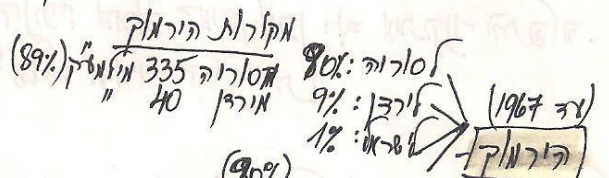 מקורות הירמוק
מסוריה 335 מילמ"ק (89%)
מירדן 40 "
לסוריה: 80%
לירדן: 9%
לישראל: 1%
(עד 1967)
הירמוק